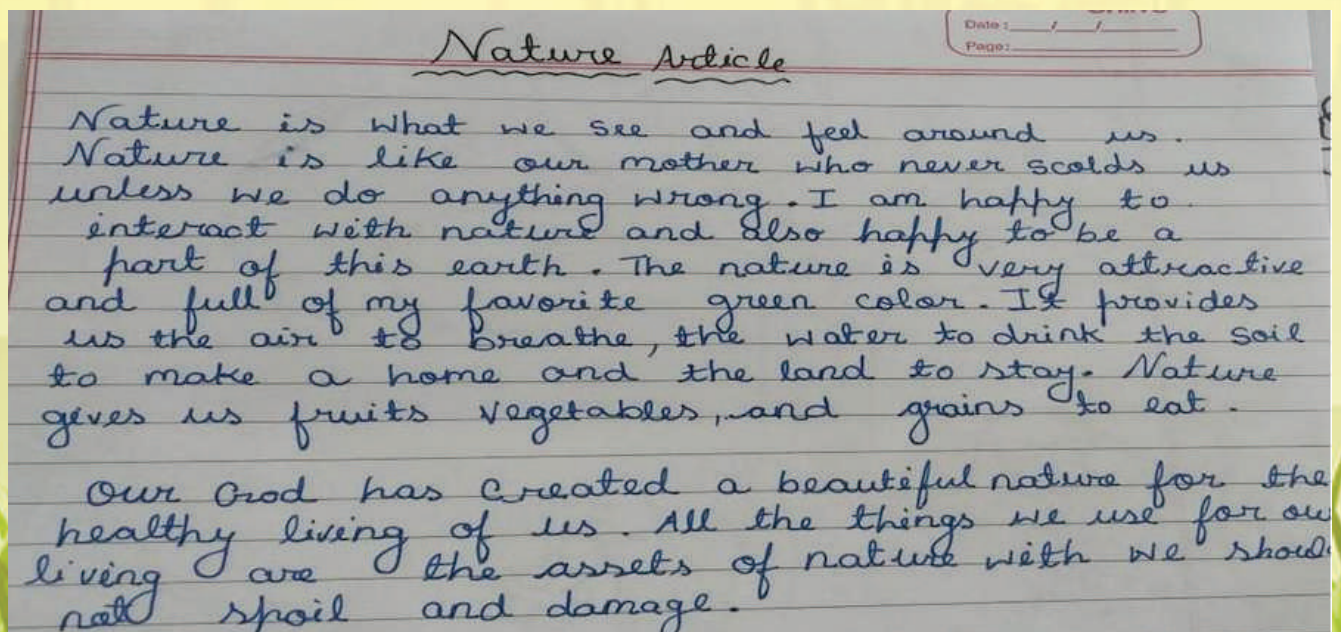 Date: / /
Page:
Nature Article
Nature is what we see and feel around us.
Nature is like our mother who never scolds us
unless we do anything wrong. I am happy to
interact with nature and also happy to be a
part of this earth. The nature is very attractive
and full of my favorite green color. It provides
us the air to breathe, the water to drink the soil
to make a home and the land to stay. Nature
gives us fruits vegetables, and grains to eat.
Our God has created a beautiful nature for the
healthy living of us. All the things we use for ou
living are the assets of nature with we shoul
not spoil and damage.